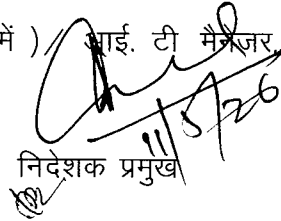 में ) / आई. टी मैनेजर,
11/5/26
निदेशक प्रमुख